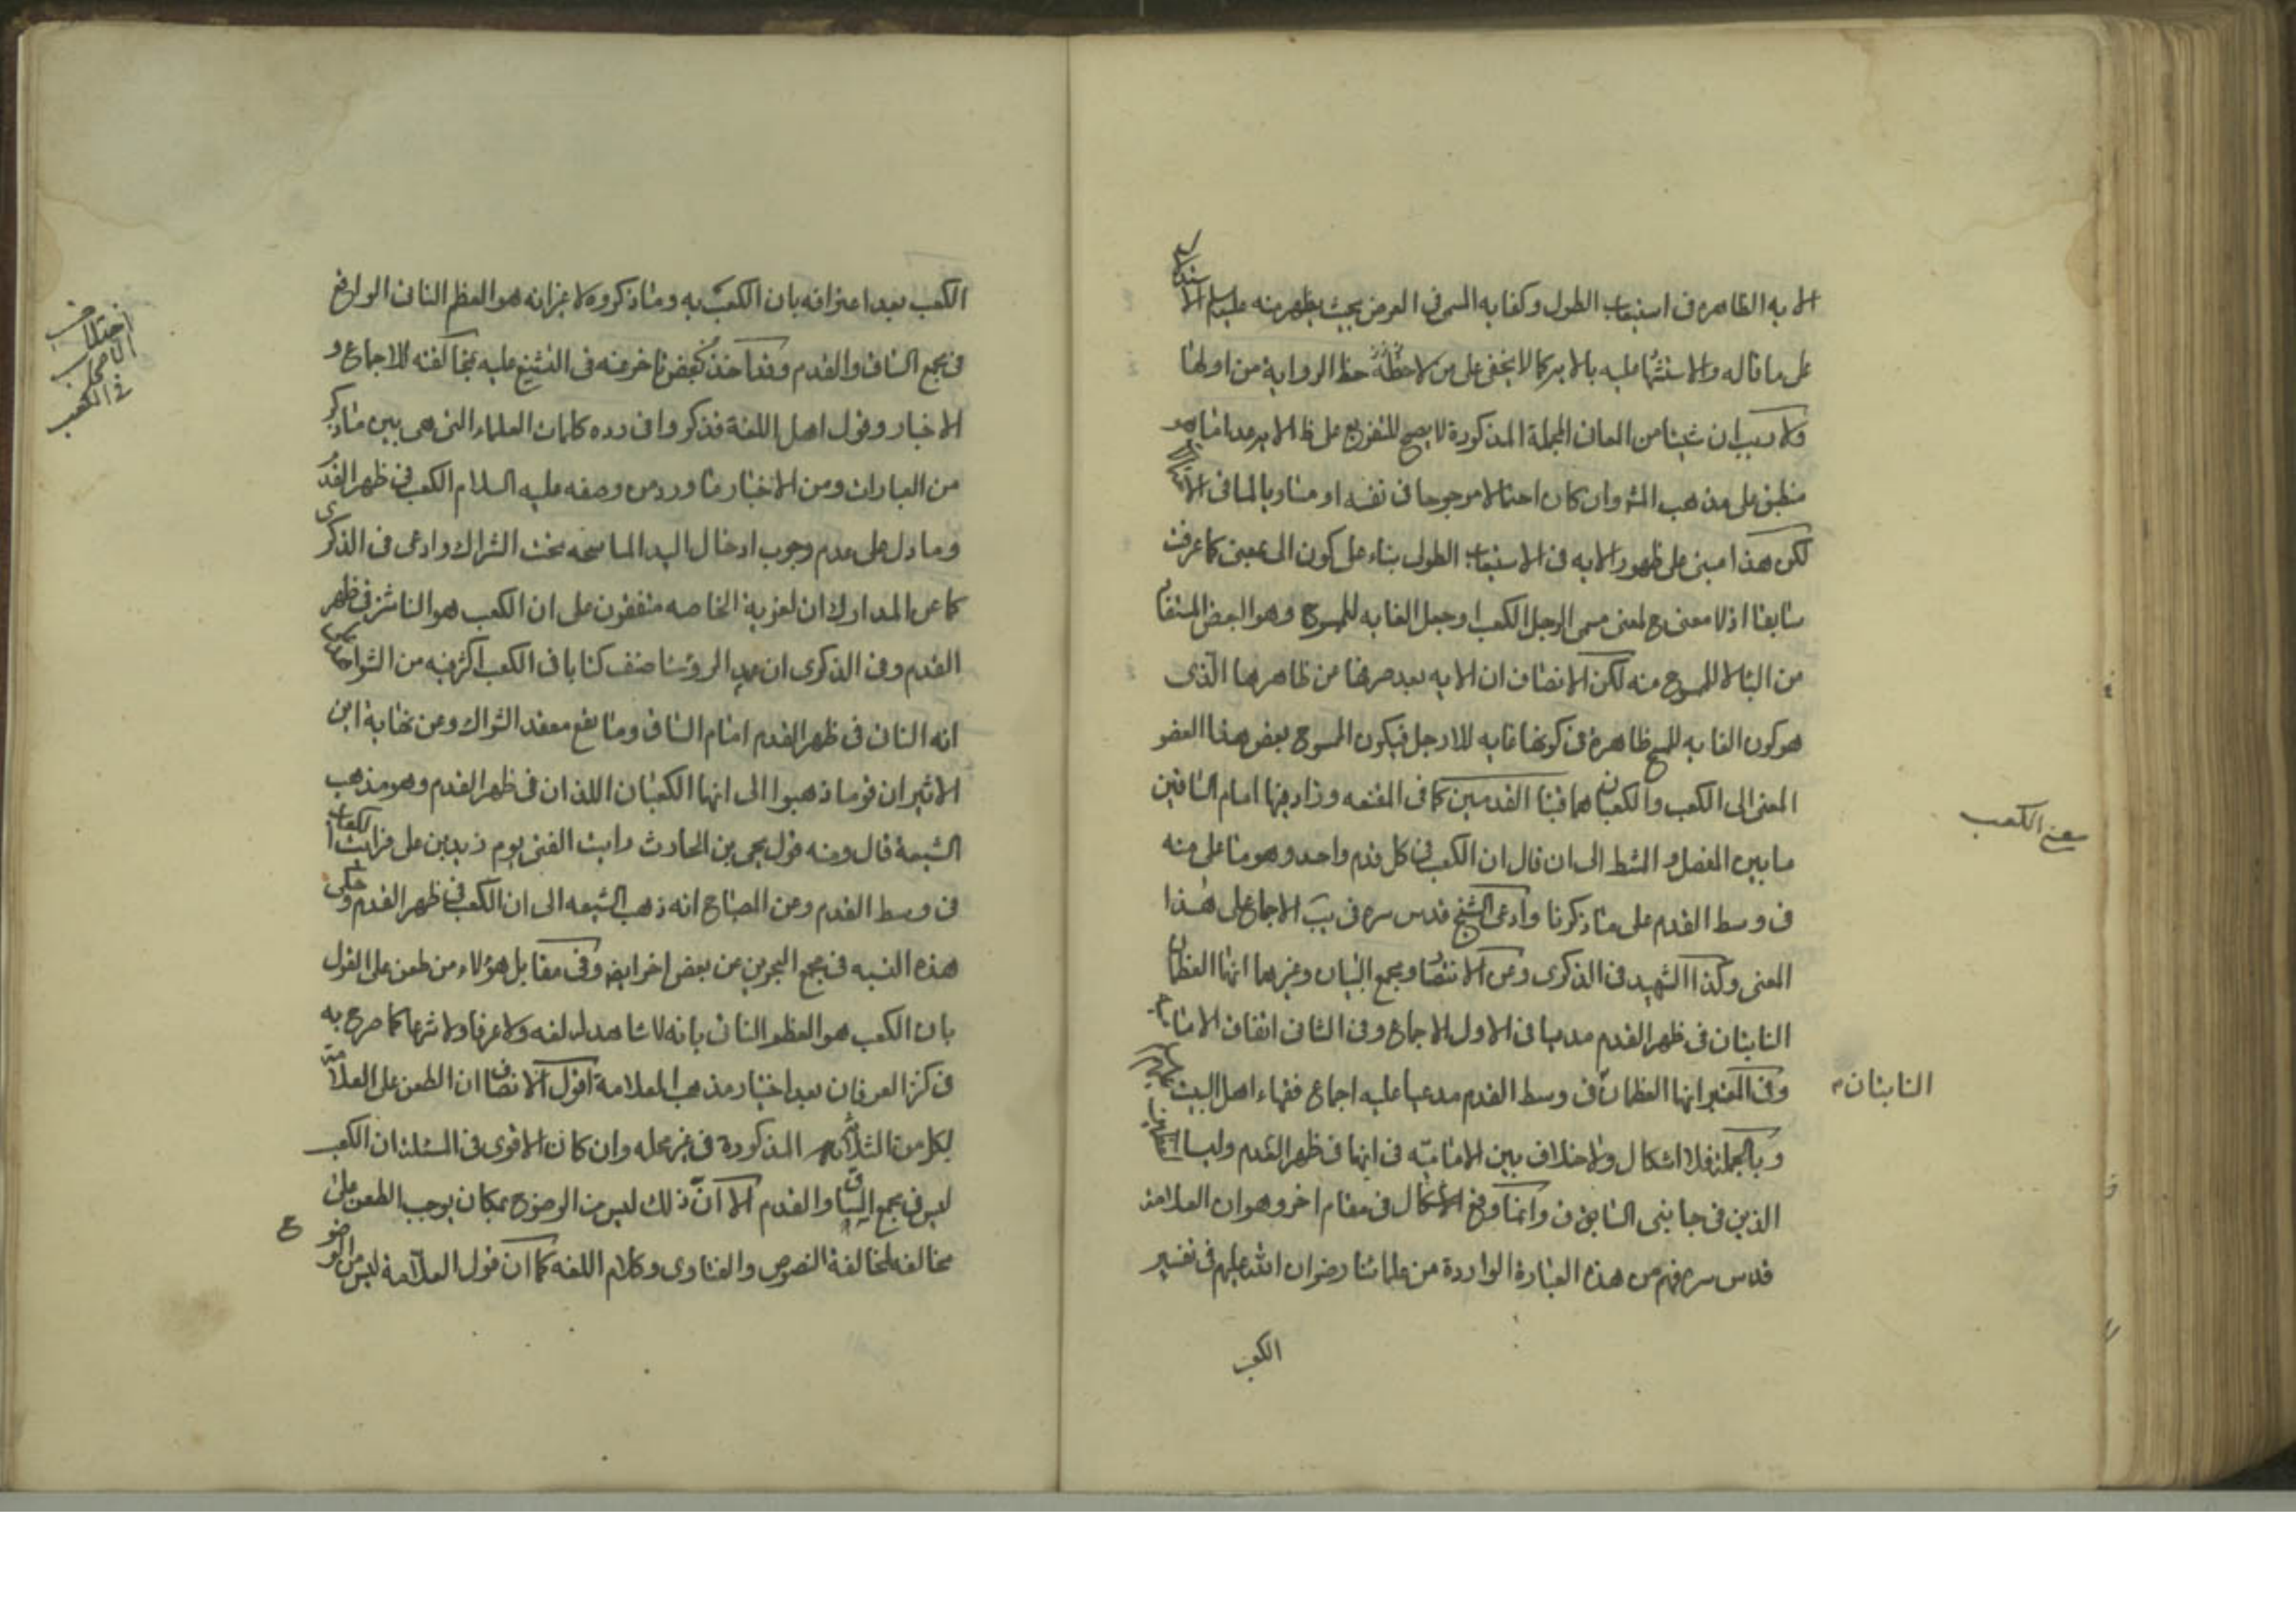 الايه الظاهره فى استيعاب الطول وكفايه المسمى فى العرض بحيث يظهر منه عليه السلام الاستناد
على ما قاله والاستشهاد عليه بالايه كما لا يخفى على من لاحظ الرواية من اولها
ولا ريب ان شيئا من المعانى المجملة المذكورة لا يصح للتفريع على ظ الايه عدا ما هو
منطبق على مذهب المشهور وان كان احتمالا مرجوحا فى نفسه او مساويا لما فى
لكن هذا مبنى على ظهور الايه فى الاستيعاب الطولى بناء على كون الى بمعنى كما عرفت
سابقا اذ لا معنى ح لمعنى مسمى الرجل الكعب او جعل الغايه للممسوح وهو البعض المستفاد
من الباء لا الممسوح منه لكن الانصاف ان الايه بعد صرفها من ظاهرها الذى
هو كون الغايه للمسح ظاهرة فى كونها غايه للارجل فيكون الممسوح بعض هذا العضو
المغيى الى الكعب والكعبان هما قبتا القدمين كما فى المقنعه وزاد فيها امام الساقين
ما بين المفصل والمشط الى ان قال ان الكعب فى كل قدم واحد وهو ما على منه
فى وسط القدم على ما ذكرنا وادعى الشيخ قدس سره فى يب الاجماع على هذا
المعنى وكذا الشهيد فى الذكرى وعن الانتصار ومجمع البيان وغيرهما انهما العظمان
النابتان فى ظهر القدم مدعيا فى الاول الاجماع وفى الثانى اتفاق الاماميه
وفى المعتبر انهما العظمان فى وسط القدم مدعيا عليه اجماع فقهاء اهل البيت
وبالجملة فلا اشكال ولا خلاف بين الاماميّه فى انهما فى ظهر القدم وليسا
الذين فى جانبى الساقين وانما وقع الاشكال فى مقام اخر وهو ان العلامة
قدس سره فهم من هذه العبارة الواردة من علمائنا رضوان الله عليهم فى تفسير
الكعب
معنى الكعب
النابتان
الكعب بعد اعترافه بان الكعب به وما ذكروه لا غير انه هو العظم الناتى الواقع
فى مجمع الساق والقدم وقد اخذ بعض من تاخر عنه فى التشنيع عليه بمخالفته للاجماع و
الاخبار وقول اهل اللغة فذكروا فى رده كلمات العلماء التى هى بين ما ذكر
من العبارات ومن الاخبار ما ورد من وصفه عليه السلام الكعب فى ظهر القدم
وما دل على عدم وجوب ادخال اليد الماسحه تحت الشراك وادعى فى الذكرى
كما عن المدارك ان لغويه الخاصه متفقون على ان الكعب هو الناشز فى ظهر
القدم وفى الذكرى ان عميد الروسا صنف كتابا فى الكعب اكثر فيه من الشواهد على
انه الناتى فى ظهر القدم امام الساق وما يقع معقد الشراك وعن نهاية ابن
الاثير ان قوما ذهبوا الى انهما الكعبان اللذان فى ظهر القدم وهو مذهب
الشيعة قال ومنه قول يحيى بن الحارث رايت القتلى يوم زيد بن على فرايت الكعاب
فى وسط القدم وعن المصباح انه ذهب الشيعه الى ان الكعب فى ظهر القدم وحكى
هذه النسبه فى مجمع البحرين عن بعض اخر ايضا وفى مقابل هؤلاء من طعن على القول
بان الكعب هو العظم الناتى بانه لا شاهد له لغه ولا عرفا ولا شرعا كما صرح به
فى كنز العرفان بعد اختيار مذهب العلامة اقول الانصاف ان الطعن على العلامة
بكل من الثلاثه المذكورة فى غير محله وان كان الاقوى فى المسئلة ان الكعب
ليس فى مجمع الساق والقدم الا انّ ذلك ليس من الوضوح بمكان يوجب الطعن على
مخالفه لمخالفة النصوص والفتاوى وكلام اللغه كما ان قول العلّامة ليس من الوضو
ح
اختلاف
الاصحاب
فى الكعب